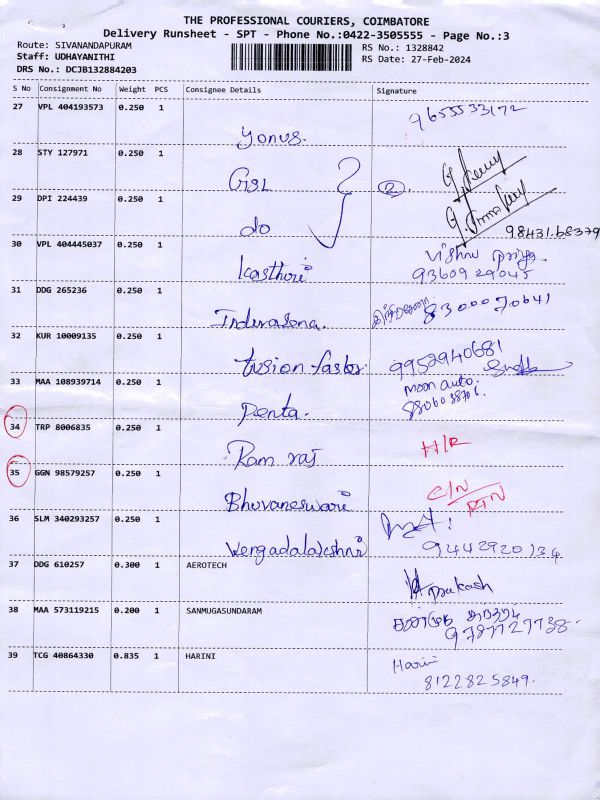 THE PROFESSIONAL COURIERS, COIMBATORE
Delivery Runsheet - SPT - Phone No.:0422-3505555 - Page No.:3
Route: SIVANANDAPURAM
Staff: UDHAYANITHI
DRS No.: DCJB132884203
RS No.: 1328842
RS Date: 27-Feb-2024
S No Consignment No Weight PCS Consignee Details Signature
27 VPL 404193573 0.250 1 Yonus. 9655533172
28 STY 127971 0.250 1 GSL 2
29 DPI 224439 0.250 1 do
30 VPL 404445037 0.250 1 Kasthori Vishnu priya. 9360929045
31 DDG 265236 0.250 1 8300070641
32 KUR 10009135 0.250 1 fusion 9952940681
33 MAA 108939714 0.250 1 Penta. moon auto.
34 TRP 8006835 0.250 1 Ram raj H/R
35 GGN 98579257 0.250 1 Bhuvaneswari C/N RTN
36 SLM 340293257 0.250 1
37 DDG 610257 0.300 1 AEROTECH prakash
38 MAA 573119215 0.200 1 SANMUGASUNDARAM 9787727738
39 TCG 40864330 0.835 1 HARINI Harini
8122825849.